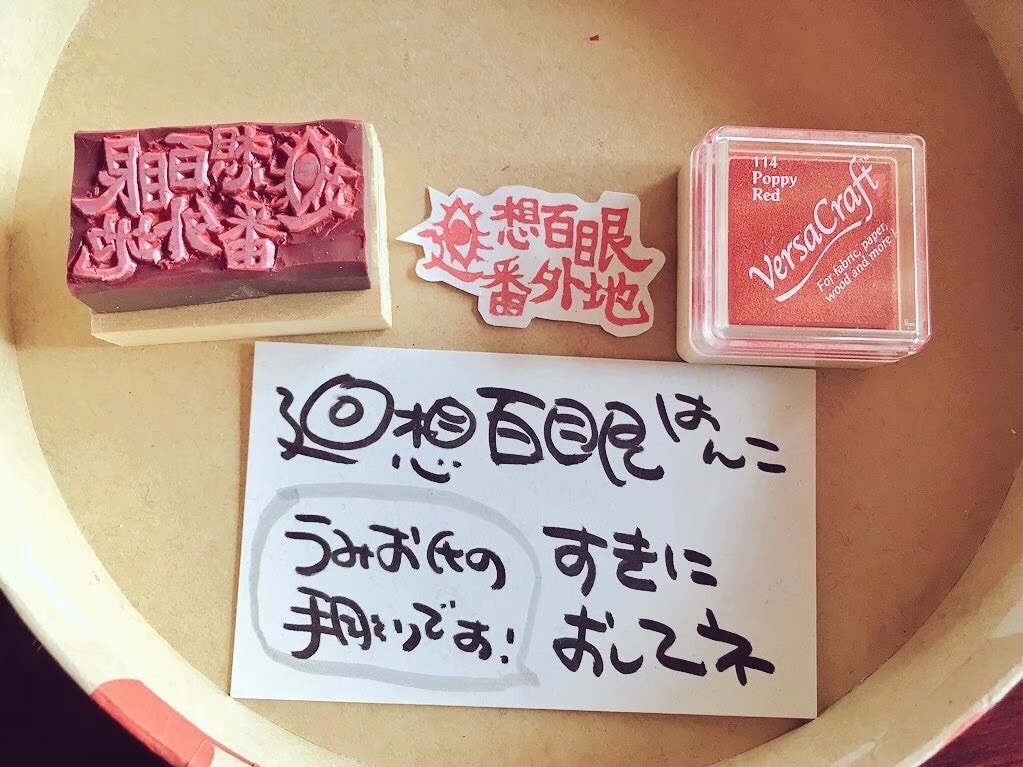 廻想百眼
番外地
114
Poppy
Red
VersaCraft
For fabric, paper,
wood and more!
廻想百眼はんこ
うみお氏の
手彫りです!
すきに
おしてネ